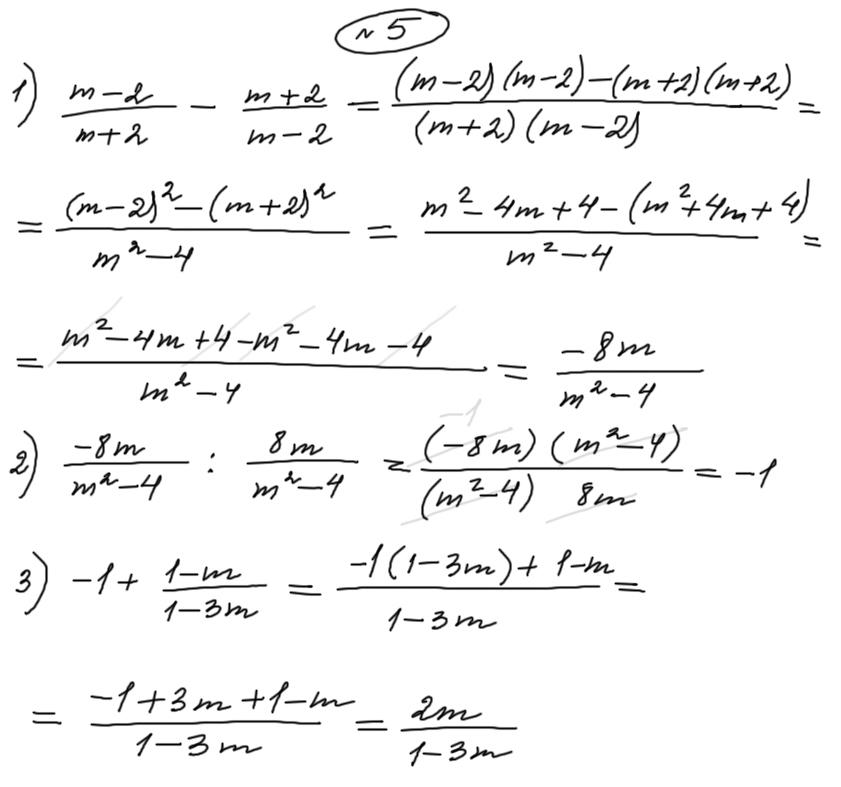 № 5
1) (m-2)/(m+2) - (m+2)/(m-2) = ((m-2)(m-2)-(m+2)(m+2))/((m+2)(m-2)) =
= ((m-2)²-(m+2)²)/(m²-4) = (m²-4m+4-(m²+4m+4))/(m²-4) =
= (m²-4m+4-m²-4m-4)/(m²-4) = (-8m)/(m²-4)
-1
2) (-8m)/(m²-4) : (8m)/(m²-4) = ((-8m)(m²-4))/((m²-4) 8m) = -1
3) -1 + (1-m)/(1-3m) = (-1(1-3m)+1-m)/(1-3m) =
= (-1+3m+1-m)/(1-3m) = (2m)/(1-3m)